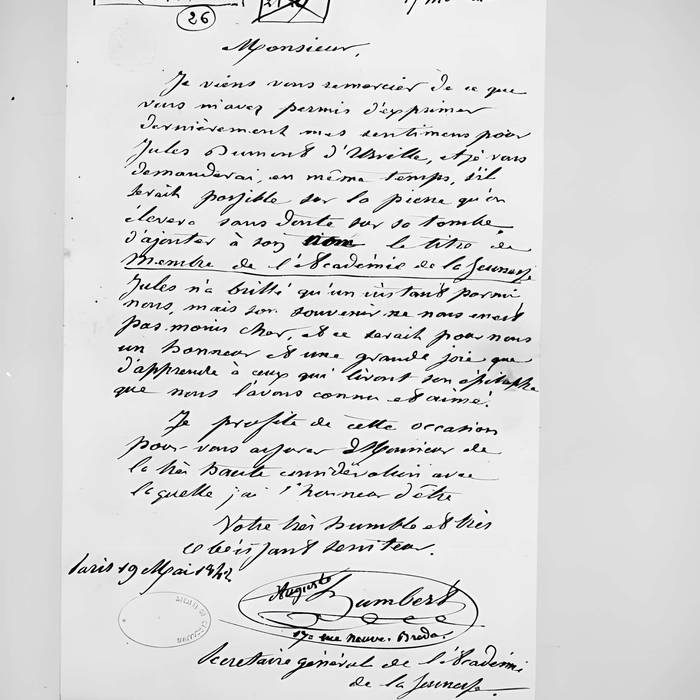 26
Monsieur,
Je viens vous remercier de ce que
vous m'avez permis d'exprimer
dernièrement mes sentimens pour
Jules Dumont d'Urville, et je vous
demanderai, en même temps, s'il
serait possible sur la pierre qu'on
élevera sans doute sur sa tombe
d'ajouter à son nom le titre de
Membre de l'Académie de la Jeunesse
Jules n'a brillé qu'un instant parmi
nous, mais son souvenir ne nous en est
pas moins cher, et ce serait pour nous
un honneur et une grande joie que
d'apprendre à ceux qui liront son épitaphe
que nous l'avons connu et aimé.
Je profite de cette occasion
pour vous assurer Monsieur de
la très haute considération avec
laquelle j'ai l'honneur d'être
Votre très humble et très
obéissant serviteur.
Paris 19 Mai 1842
Auguste Humbert
17 rue neuve Breda.
Secretaire général de l'Académie
de la Jeunesse.